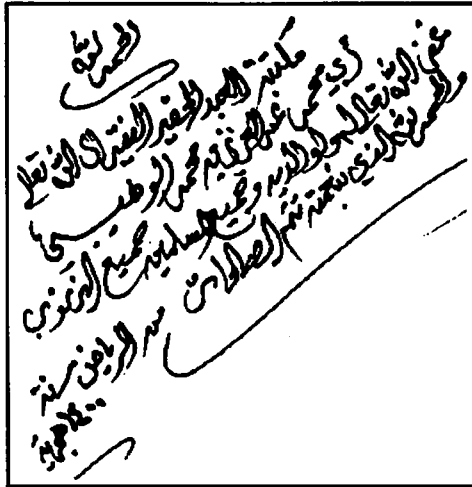 الحمد لله
كتبه العبد الحقير الفقير إلى الله تعالى
أبي محمد عبد الله بن محمد الوظيـ
غفر الله تعالى له ولوالديه وجميع المسلمين جميع الذنوب
والحمد لله الذي بنعمته تتم الصالحات
الرياض سنة
١٤٠٠ هجرية